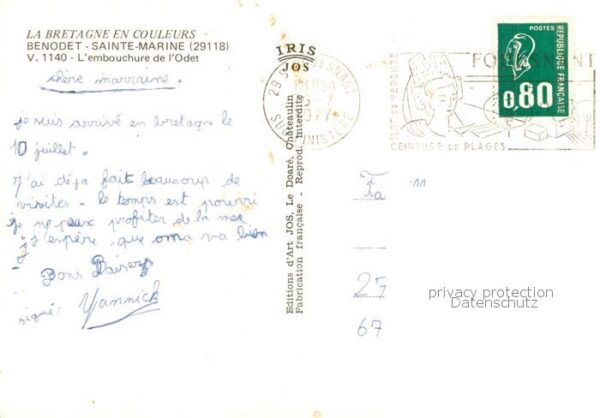 LA BRETAGNE EN COULEURS
BENODET - SAINTE-MARINE (29118)
V. 1140 - L'embouchure de l'Odet
chère marraine.
je suis arrivé en bretagne le
10 juillet.
J'ai déja fait beaucoup de
visites - le temps est pourri
je ne peux profiter de la mer
j'espère que oma va bien
Bons Baisers
signé: Yannick
IRIS
JOS
Editions d'Art JOS, Le Doaré, Châteaulin
Fabrication française - Reprod. interdite
29 S
1977
FINISTERE
CEINTURE DE PLAGES
POSTES
REPUBLIQUE FRANÇAISE
0,80
Fa
25
67
privacy protection
Datenschutz